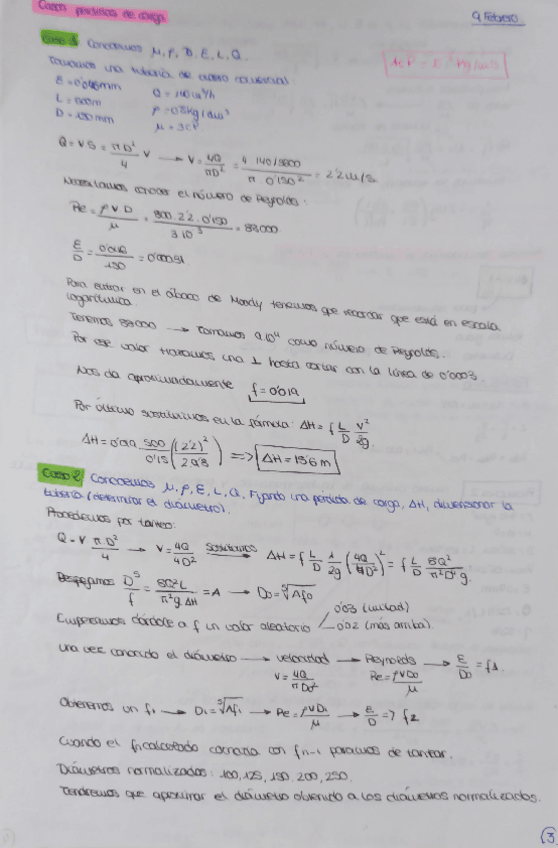 Casos pérdidas de carga
9 Febrero
Caso 1 Conocemos μ, ρ, D, ε, L, Q.
Tomamos una tubería de acero comercial
1cP = 10⁻³ Pa·s
ε = 0'046mm Q = 140 m³/h
L = 500m ρ = 0'8 kg/dm³
D = 150mm μ = 3cP
Q = V S = πD²/4 V → V = 4Q/πD² = 4·140/3600 / π·0'150² = 2'2 m/s
Necesitamos conocer el número de Reynolds:
Re = ρVD/μ = 800·2'2·0'150 / 3·10⁻³ = 88000
ε/D = 0'046/150 = 0'00031
Para entrar en el ábaco de Moody tenemos que recordar que está en escala
logarítmica.
Tenemos 88000 → Tomamos 9·10⁴ como número de Reynolds.
Por ese valor trazamos una ⊥ hasta cortar con la línea de 0'0003
Nos da aproximadamente f = 0'019
Por último sustituimos en la fórmula: ΔH = f L/D V²/2g
ΔH = 0'019 500/0'15 (2'2)²/2·9'8 => ΔH = 15'6 m
Caso 2 Conocemos μ, ρ, ε, L, Q. Fijando una pérdida de carga, ΔH, dimensionar la
tubería (determinar el diámetro).
Procedemos por tanteo:
Q = V πD²/4 → V = 4Q/4D² sustituimos → ΔH = f L/D 1/2g (4Q/πD²)² = f L/D 8Q²/π²D⁴g
Despejamos D⁵/f = 8Q²L/π²g·ΔH = A → D₀ = ⁵√Af₀
Empezamos dándole a f un valor aleatorio 0'03 (mitad)
0'02 (más arriba).
Una vez conocido el diámetro → velocidad → Reynolds → ε/D₀ = f₁.
V = 4Q/πD₀² Re = ρVD₀/μ
Obtenemos un f₁ → D₁ = ⁵√Af₁ → Re = ρVD₁/μ → ε/D = ? f₂
Cuando el fₙ calculado coincida con fₙ₋₁ paramos de tantear.
Diámetros normalizados: 100, 125, 150, 200, 250.
Tendremos que aproximar el diámetro obtenido a los diámetros normalizados.
3